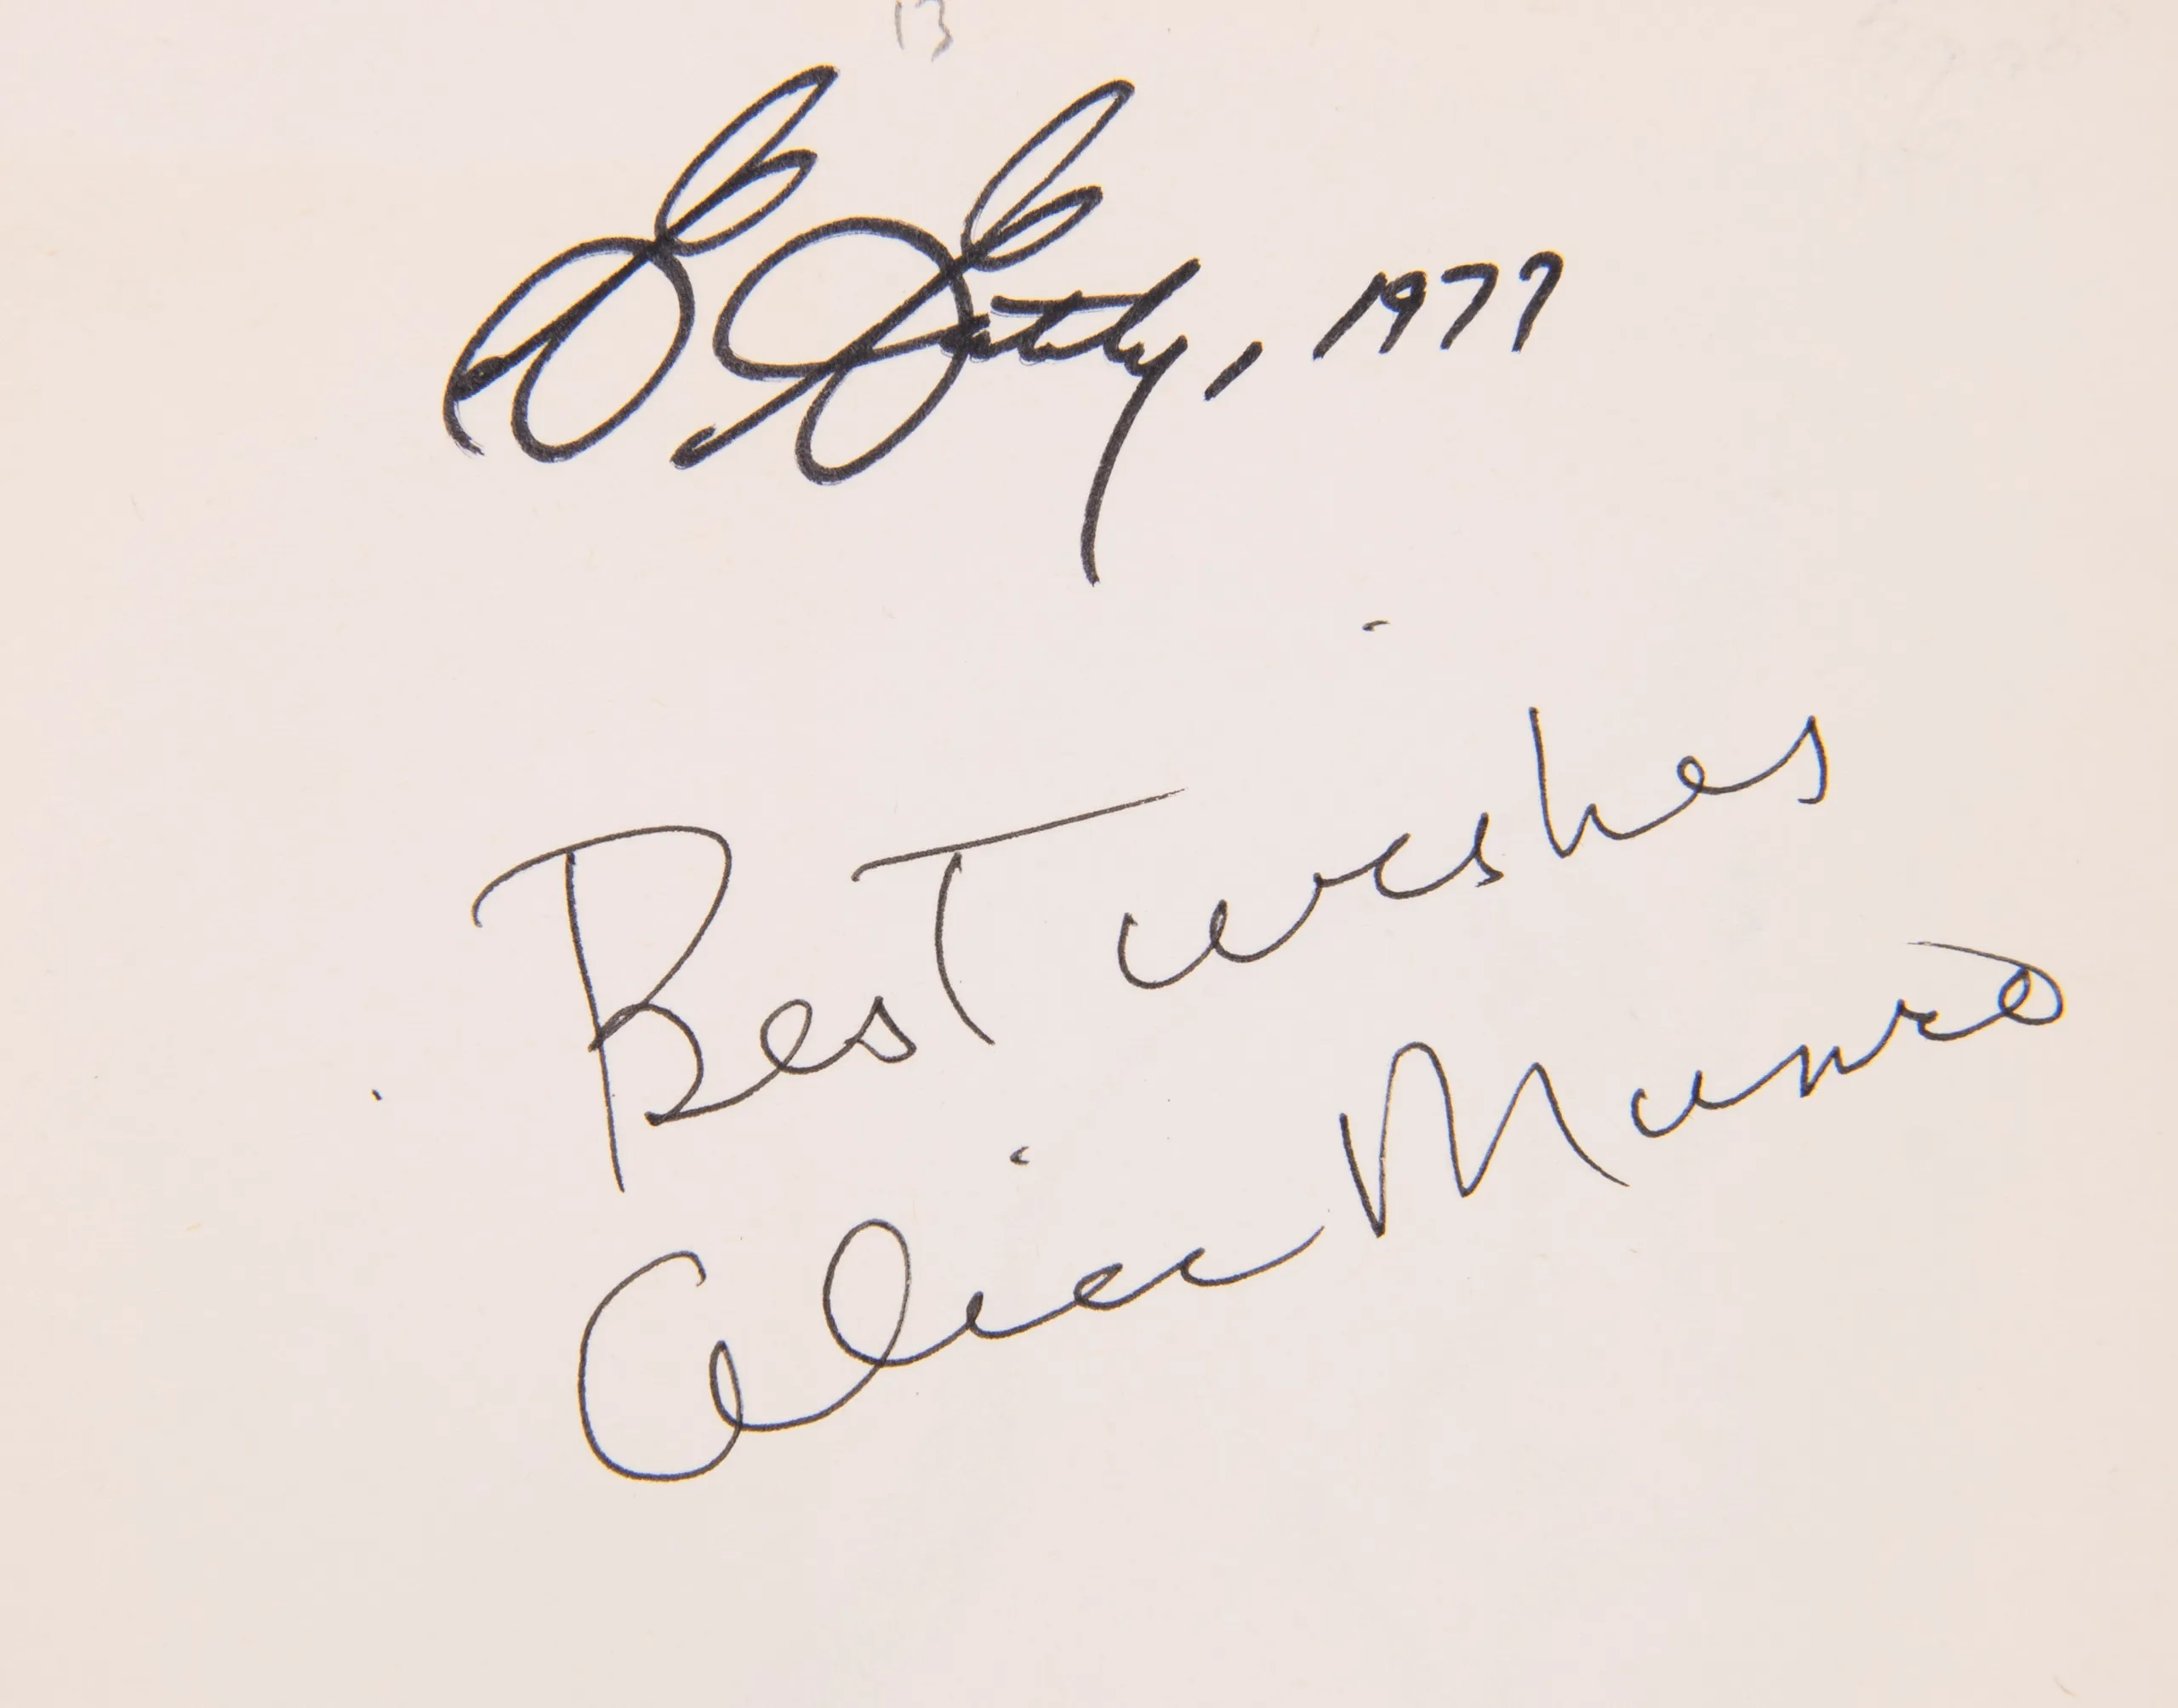 13
G. Gatly, 1977
Best wishes
Alice Munro